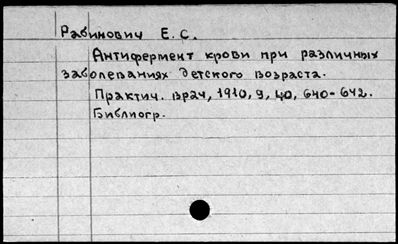 Рабинович Е.С.
Антифермент крови при различных
заболеваниях детского возраста.
Практич. врач, 1910, 9, 40, 640-642.
Библиогр.